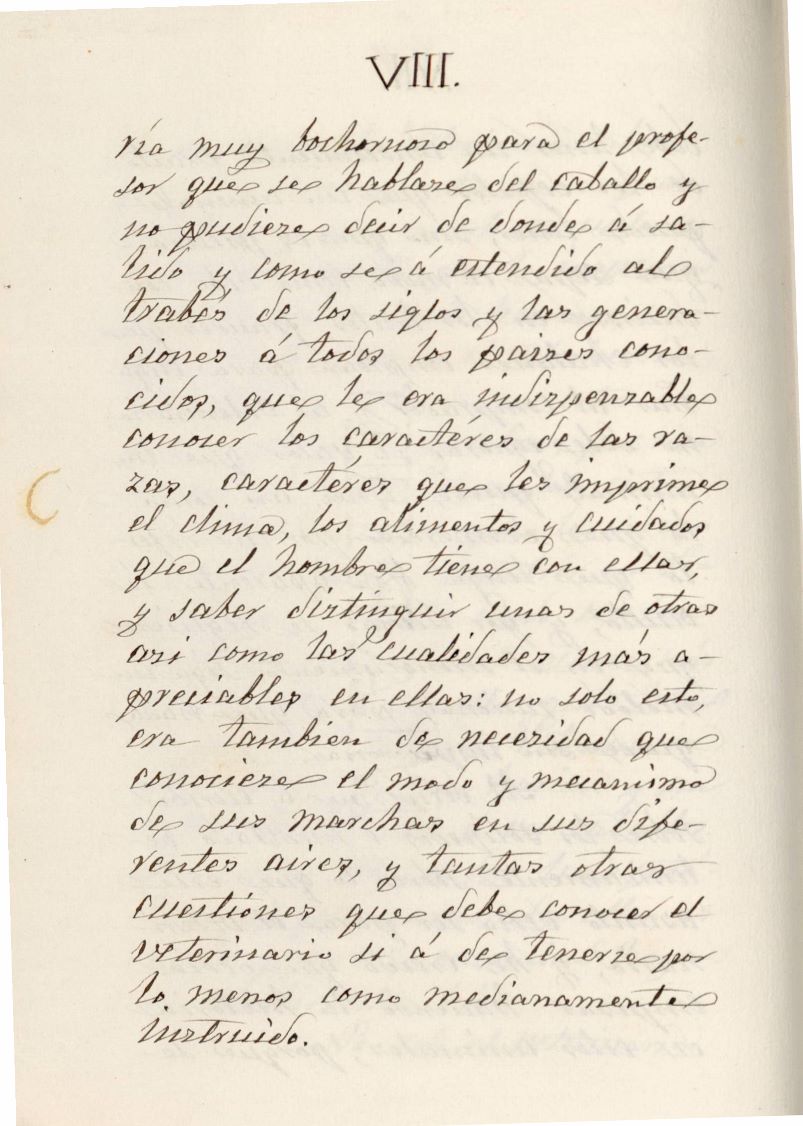 VIII.
ría muy bochornoso para el profe-
sor que se hablaze del caballo y
no pudieze decir de donde á sa-
lido y como se á estendido al
trabés de los siglos y las genera-
ciones á todos los paizes cono-
cidos, que le era indizpenzable
conocer los caractéres de las ra-
zas, caractéres que les imprime
el clima, los alimentos y cuidados
que el hombre tiene con ellas,
y saber diztinguir unas de otras
azi como las cualidades más a-
preciables en ellas: no solo esto,
era tambien de necezidad que
conocieze el modo y mecanismo
de sus marchas en sus dife-
rentes aires, y tantas otras
cuestiones que debe conocer el
veterinario si á de tenerze por
lo menos como medianamente
inztruido.